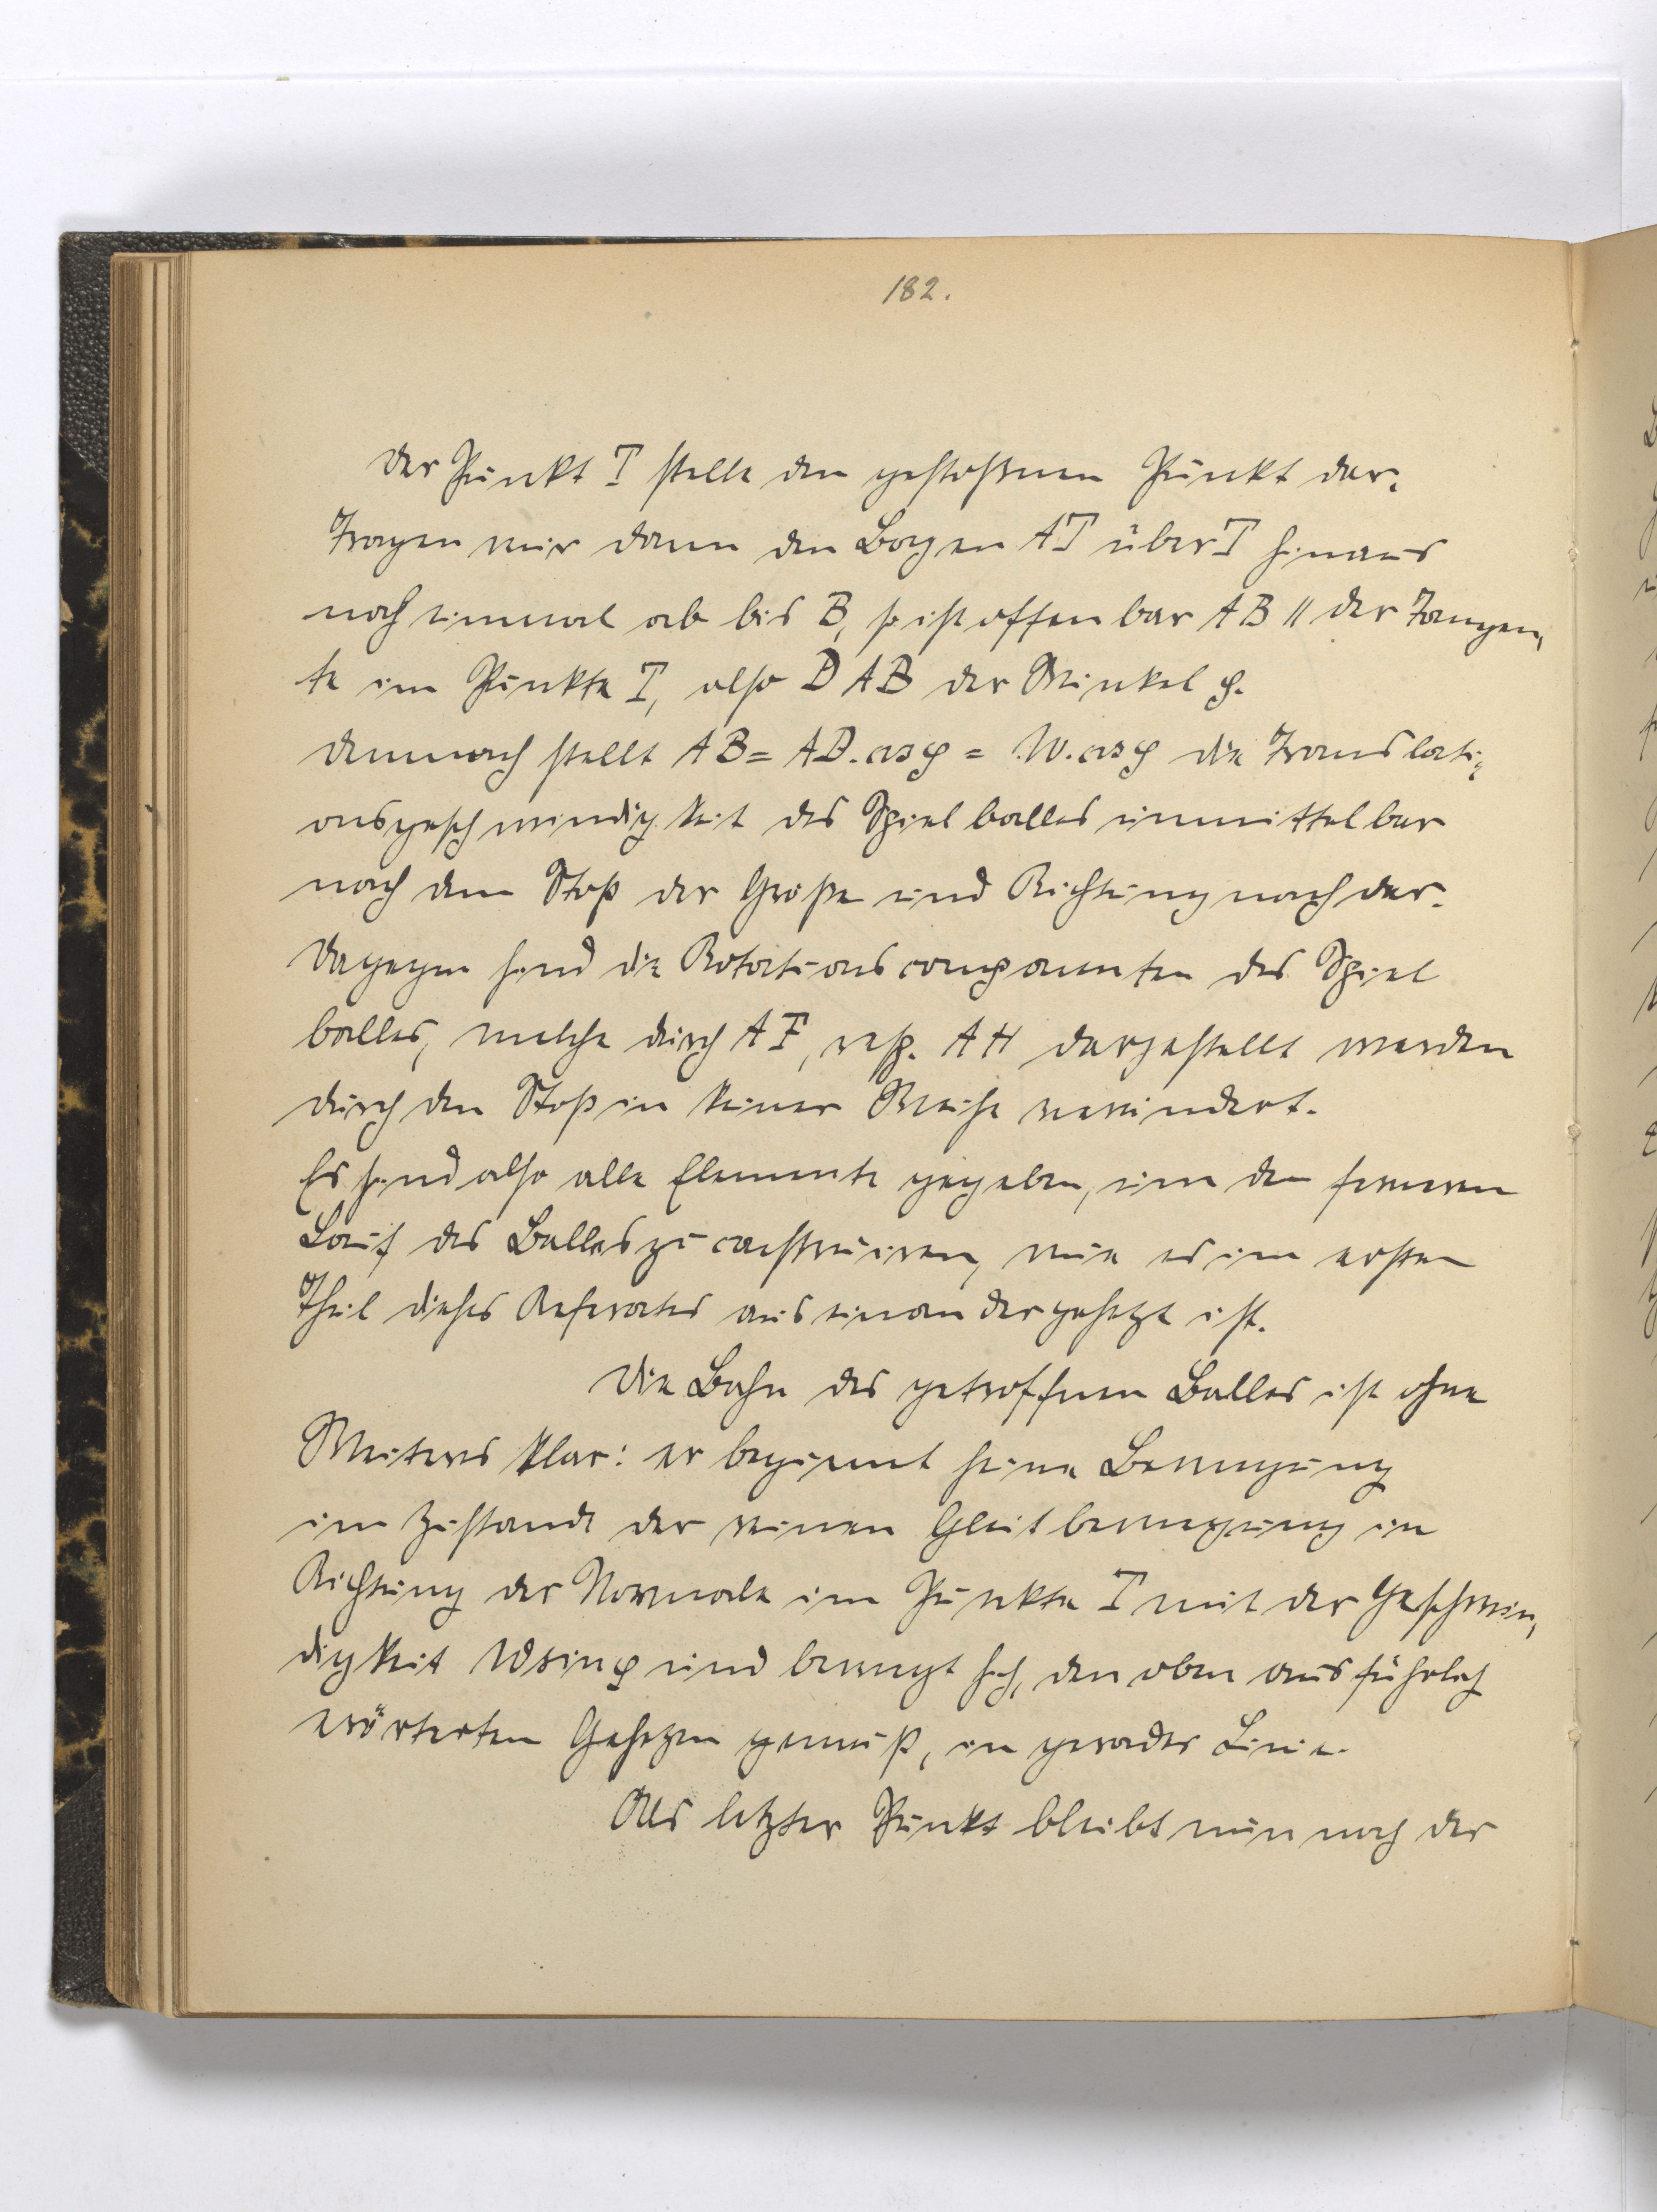 182.
Der Punkt T stelle den gestoßenen Punkt dar.
Tragen wir dann den Bogen AT über T hinaus
noch einmal ab bis B, so ist offenbar AB || der Tangen„
te im Punkte T, also DAB der Winkel φ.
Demnach stellt AB = AD. cos φ = W. cos φ die Translati„
onsgeschwindigkeit des Spielballes unmittelbar
nach dem Stoß der Größe und Richtung nach dar.
Dagegen sind die Rotationscomponenten des Spiel
balles, welche durch AF, resp. AH dargestellt werden
durch den Stoß in keiner Weise verändert.
Es sind also alle Elemente gegeben, um den ferneren
Lauf des Balles zu construiren, wie es im ersten
Theil dieses Referates auseinandergesetzt ist.
Die Bahn des getroffnen Balles ist ohne
Weiteres klar: er beginnt seine Bewegung
im Zustande der reinen Gleitbewegung in
Richtung der Normale im Punkte T mit der Geschwin„
digkeit W sin φ und bewegt sich, den oben ausführlich
erörterten Gesetzen gemäß, in gerader Linie.
Als letzter Punkt bleibt nun noch der